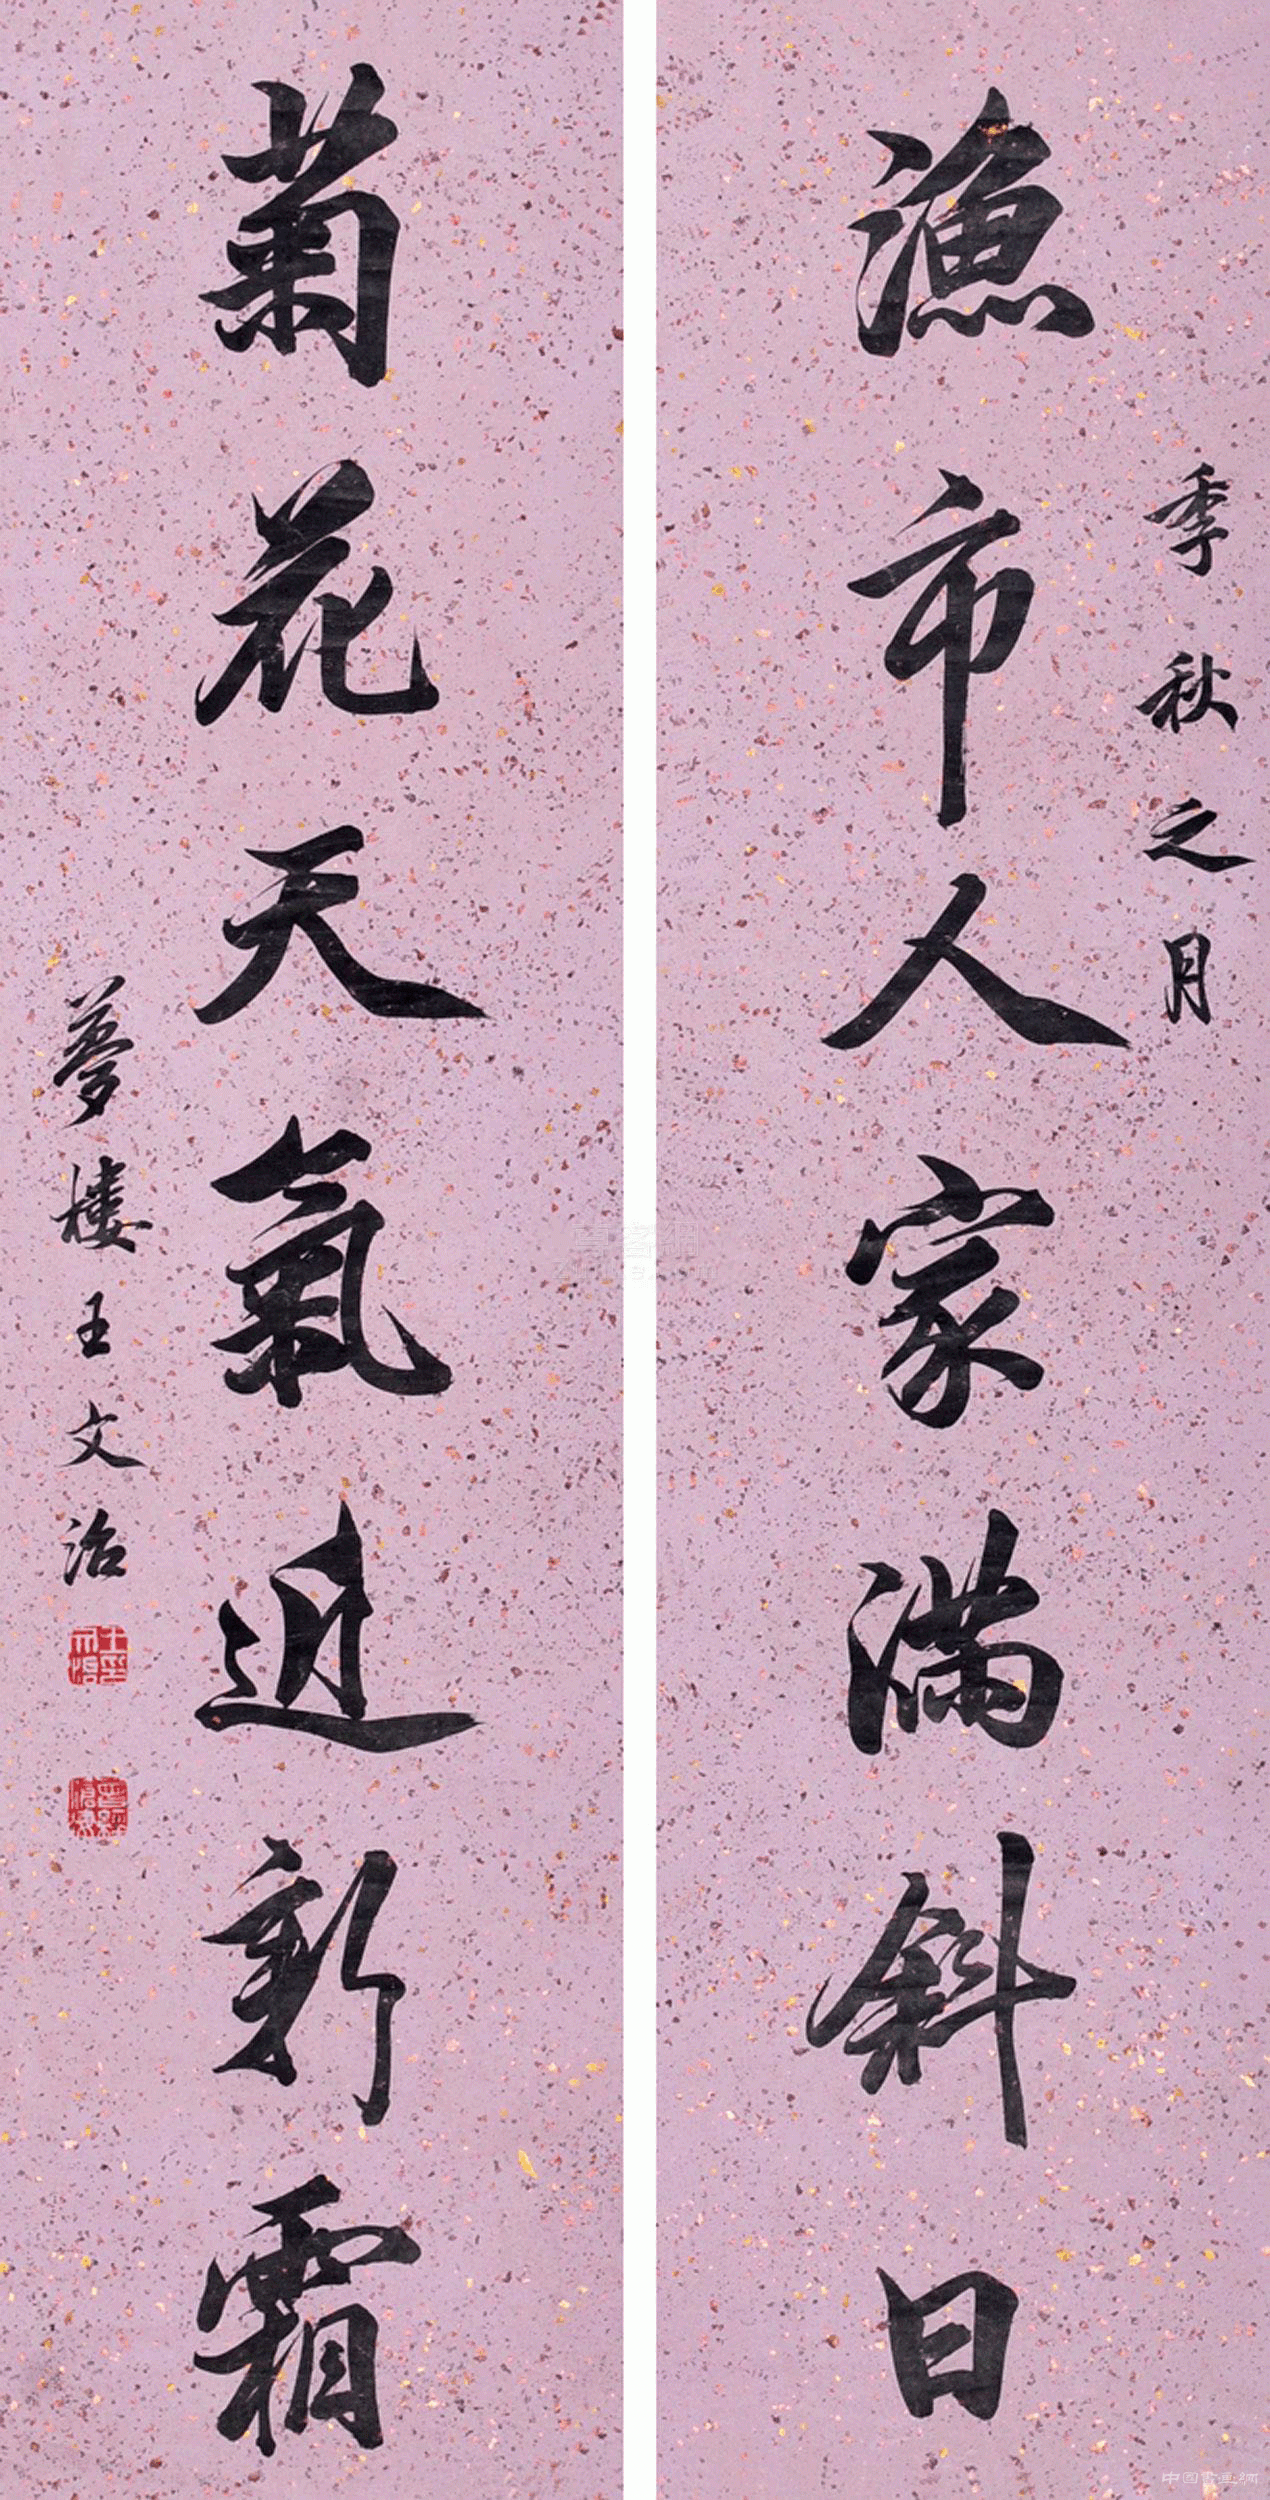 季秋之月
漁市人家滿斜日
菊花天氣近新霜
夢樓王文治
中国书画網